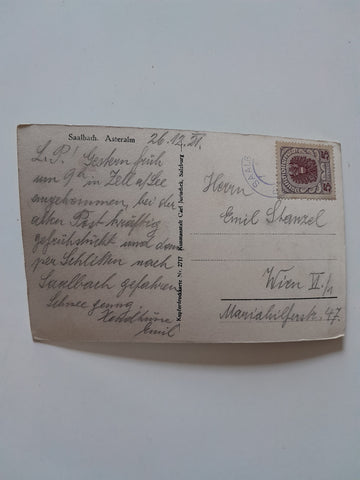 Saalbach. Asteralm
26.12.21.
L.P.! Gestern früh
um 9h in Zell a/See
angekommen, bei der
alten Post kräftig
gefrühstückt und dann
per Schlitten nach
Saalbach gefahren
Schnee genug.
Emil
Kupferdruckkarte Nr. 2717 Kunstanstalt Carl Jurischek, Salzburg
SAALB
5 5
Herrn
Emil Stanzel
Wien VI./1
Mariahilferstr. 47.